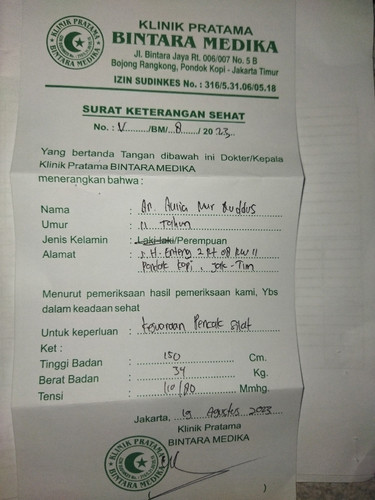 KLINIK PRATAMA
BINTARA MEDIKA
KLINIK PRATAMA
BINTARA MEDIKA
Jl. Bintara Jaya Rt. 006/007 No. 5 B
Bojong Rangkong, Pondok Kopi - Jakarta Timur
IZIN SUDINKES No. : 316/5.31.06/05.18
SURAT KETERANGAN SEHAT
No. : V /BM/ 8 / 2023
Yang bertanda Tangan dibawah ini Dokter/Kepala
Klinik Pratama BINTARA MEDIKA
menerangkan bahwa :
Nama : An. Aulia Nur Kuddus
Umur : 11 Tahun
Jenis Kelamin : Laki-laki/Perempuan
Alamat : H. Enteng 2 Rt 08 RW 11
Pondok Kopi, Jak-Tim
Menurut pemeriksaan hasil pemeriksaan kami, Ybs
dalam keadaan sehat
Untuk keperluan : Kejuaraan Pencak Silat
Ket :
Tinggi Badan : 150 Cm.
Berat Badan : 34 Kg.
Tensi : 110/80 Mmhg.
Jakarta, 19 Agustus 2023
Klinik Pratama
BINTARA MEDIKA
KLINIK PRATAMA
BINTARA MEDIKA